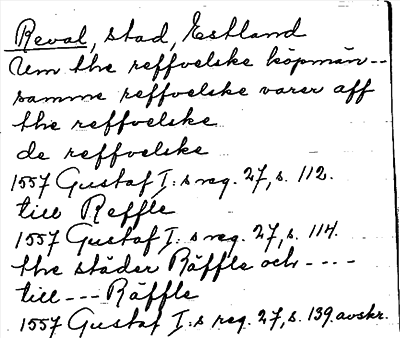 Reval, stad, Estland
Um the reffvelske köpmän--
samme reffvelske varer aff
the reffvelske
de reffvelske
1557 Gustaf I:s reg. 27, s. 112.
till Reffle
1557 Gustaf I:s reg. 27, s. 114.
the städer Räffle och ----
till --- Räffle
1557 Gustaf I:s reg. 27, s. 139. avskr.